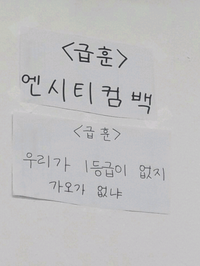 <급훈>
엔시티컴백
<급훈>
우리가 1등급이 없지
가오가 없냐